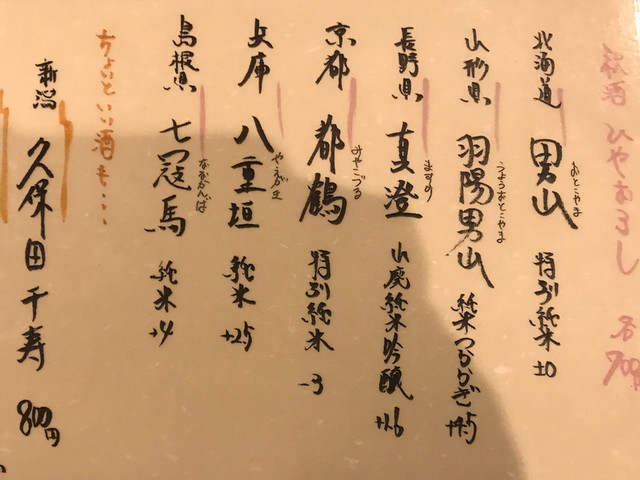 秋酒 ひやおろし 各700円
北海道 男山 おとこやま 特別純米 ±0
山形県 羽陽男山 うようおとこやま 純米つららぎ +4.5
長野県 真澄 ますみ 山廃純米吟醸 +1.6
京都 都鶴 みやこづる 特別純米 -3
兵庫 八重垣 やえがき 純米 +2.5
島根県 七冠馬 ななかんば 純米 +4
ちょいといい酒も・・・
新潟 久保田 千寿 800円